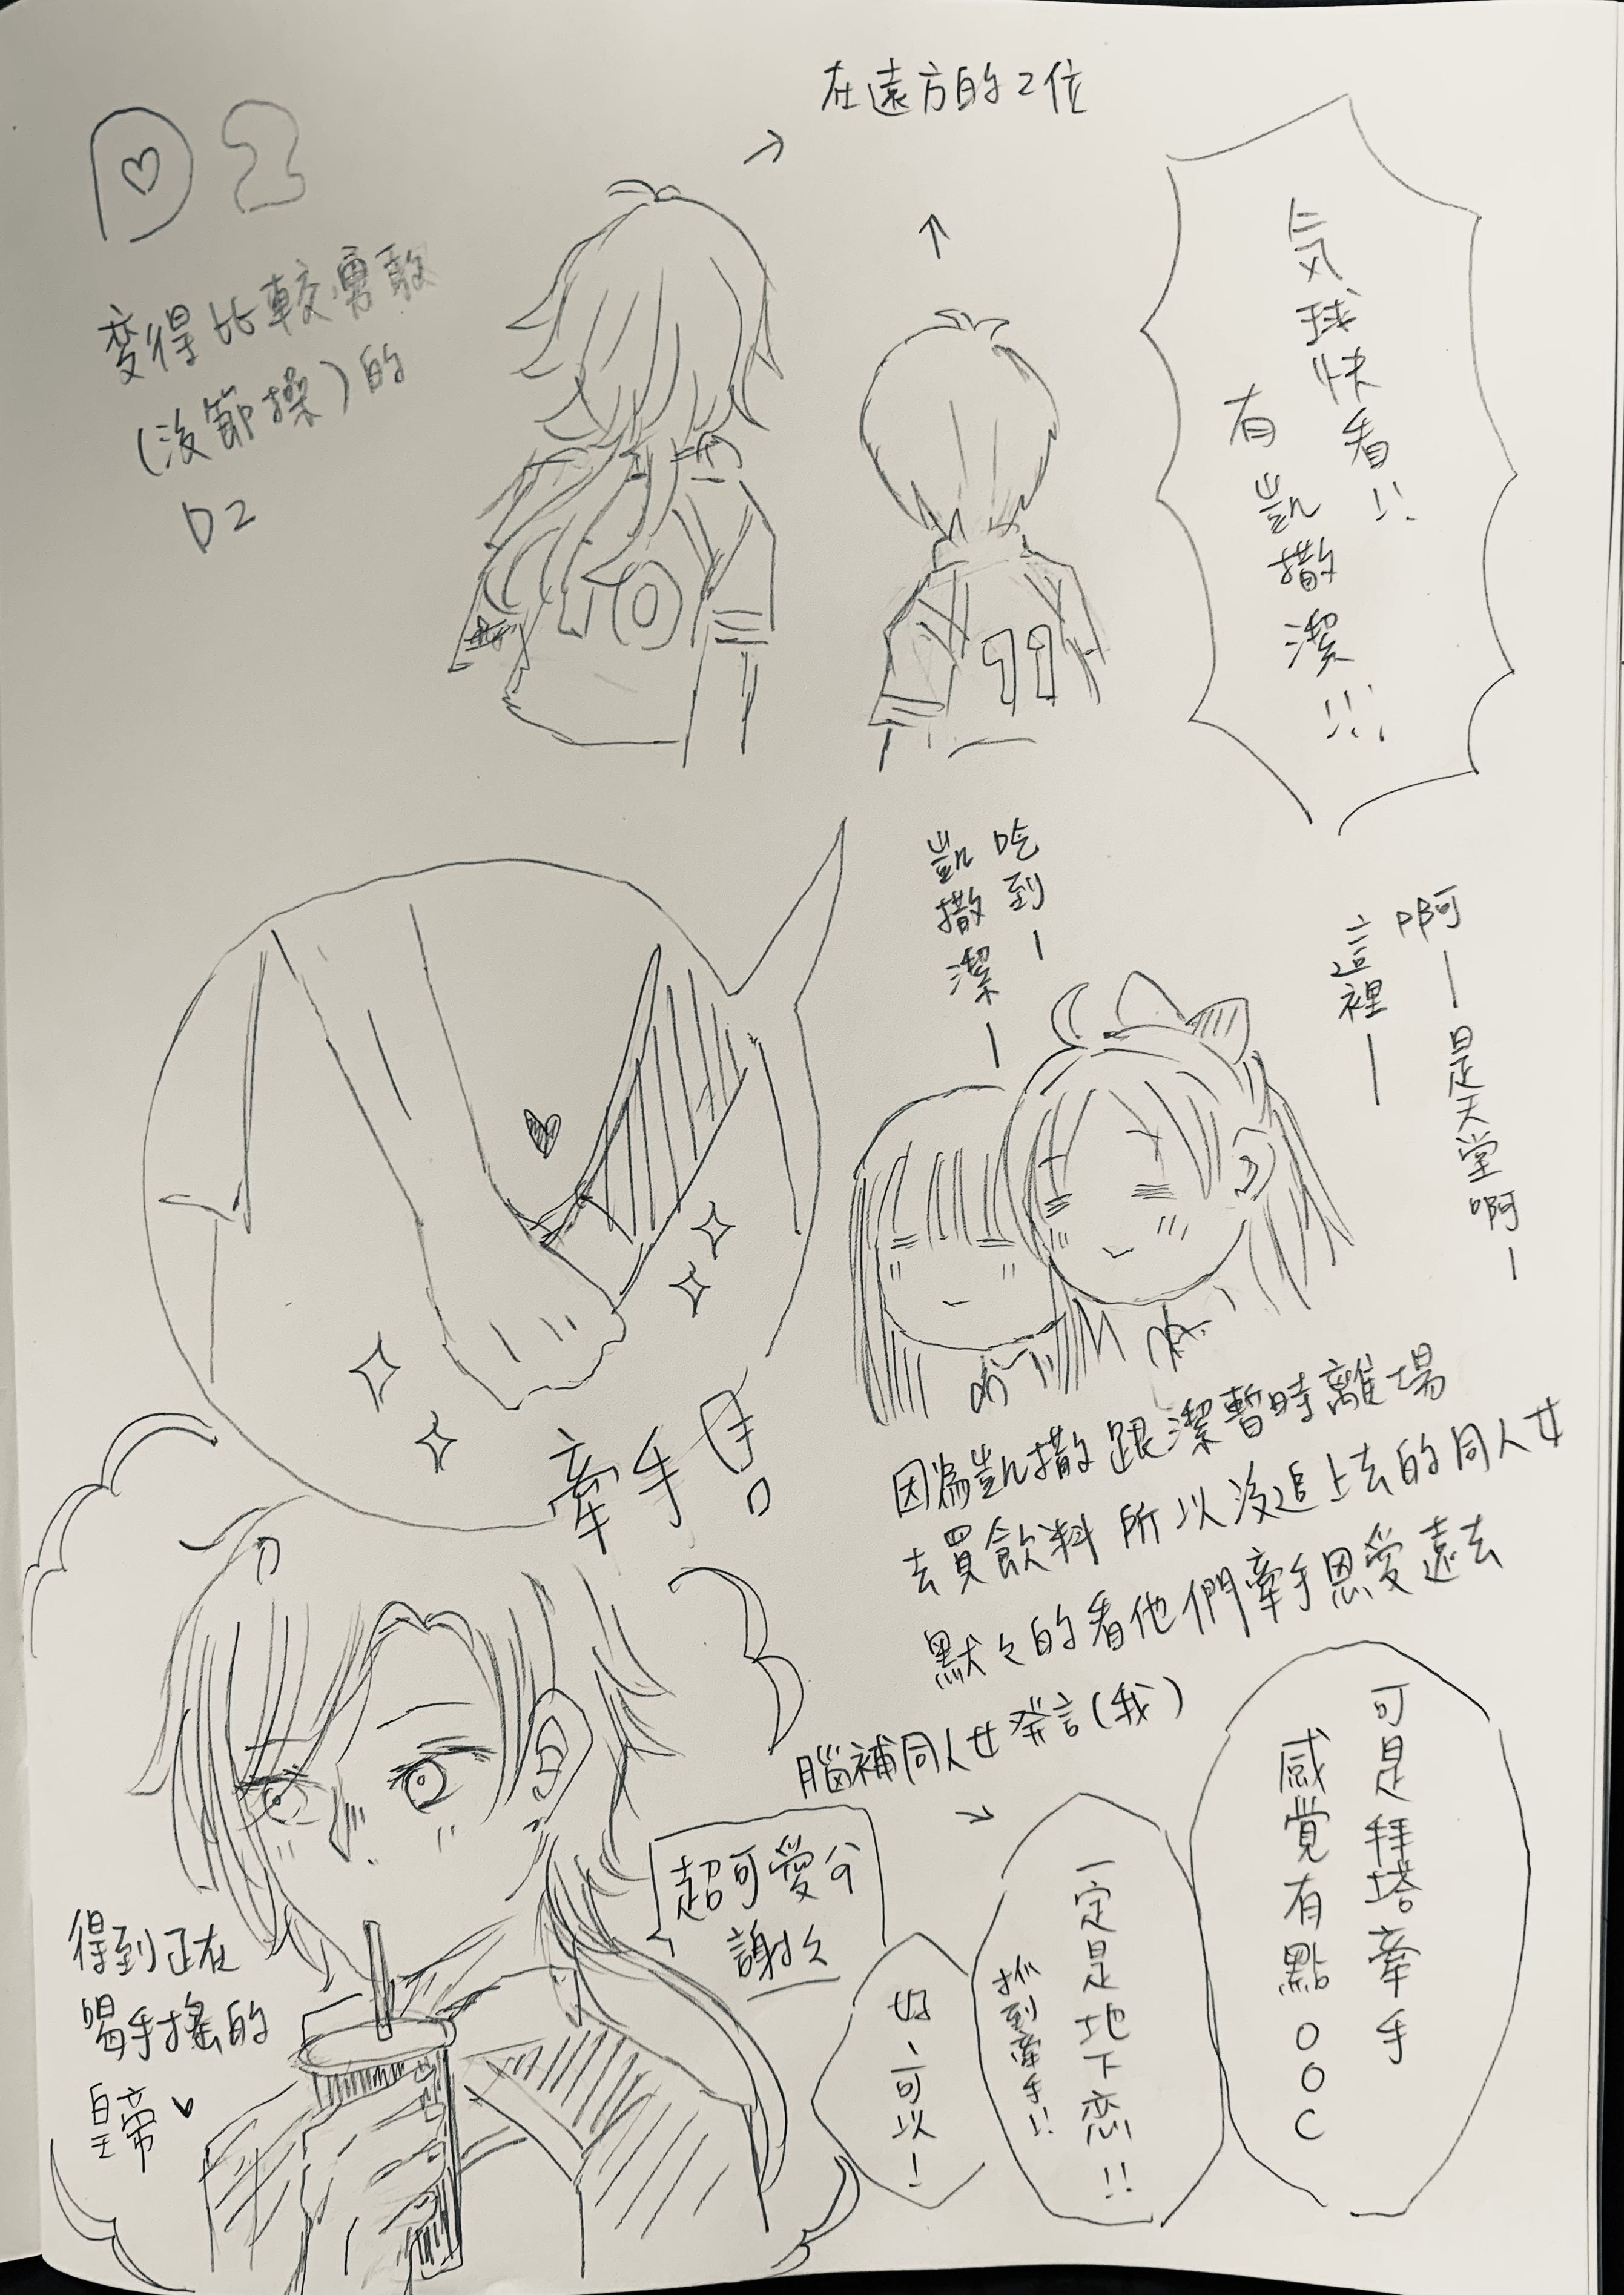 D2
変得比較勇敢
(沒節操)的
D2
在遠方的2位
気球快看!!
有凱撒潔!!!
10
99
啊—是天堂啊—
這裡—
吃到—
凱撒潔—
牽手
因為凱撒跟潔暫時離場
去買飲料所以沒追上去的同人女
默々的看他們牽手恩愛遠去
腦補同人女発言(我)
可是拜塔牽手
感覚有點OOC
一定是地下恋!!
抓到牽手!!
好、可以!
超可愛
謝々
得到正在
喝手搖的
皇帝